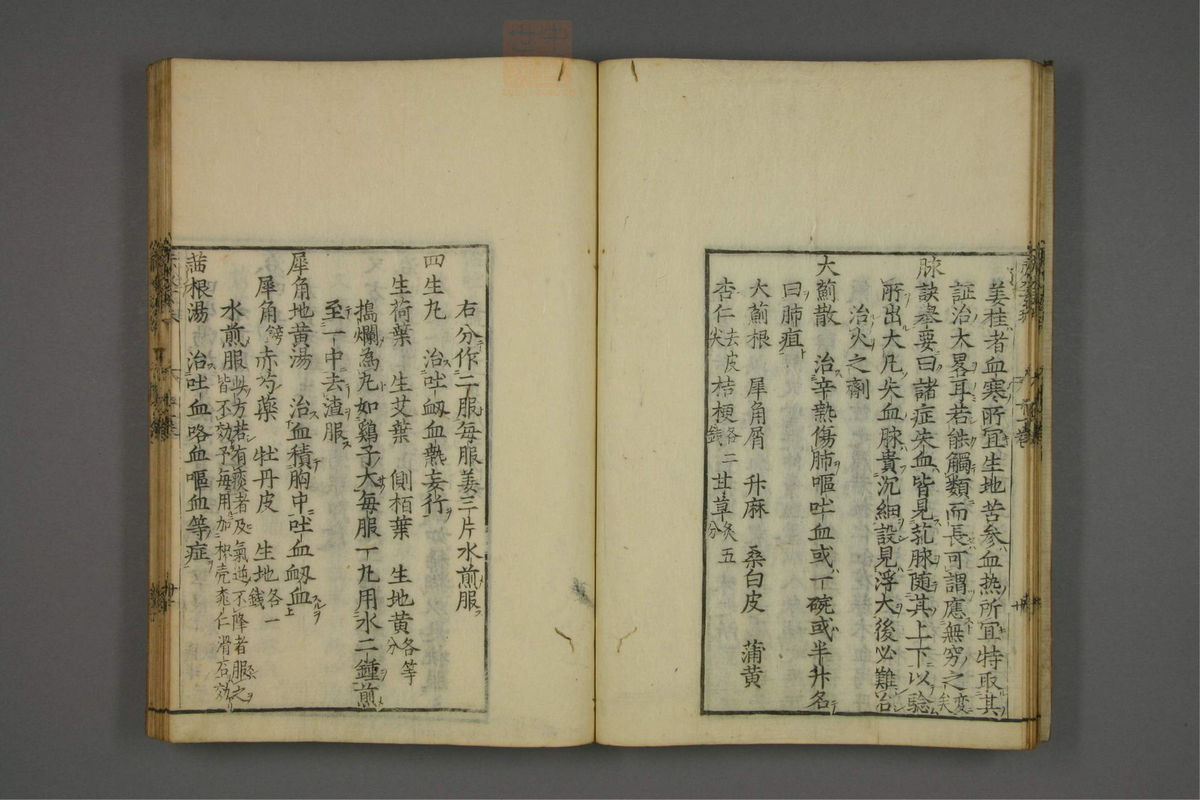 姜桂者血寒所宜生地苦参血热所宜特取其
証治大畧耳若能觸類而長可謂應無窮之変矣
脉訣举要曰諸症失血皆見芤脉随其上下以驗
所出大凡失血脉貴沉細設見浮大後必難治
治火之劑
大薊散 治辛熱傷肺嘔吐血或一碗或半升名
曰肺疽
大薊根 犀角屑 升麻 桑白皮 蒲黄
杏仁去皮尖 桔梗各二錢 甘草炙五分
右分作二服每服姜三片水煎服
四生丸 治吐衂血熱妄行
生荷葉 生艾葉 側栢葉 生地黄各等分
搗爛為丸如鷄子大每服一丸用水二鍾煎
至一中去渣服
犀角地黄湯 治血積胸中吐血衂血
犀角 赤芍藥 牡丹皮 生地各一錢
水煎服此方若有痰者及氣逆不降者服之皆不効予每用加枳壳桃仁滑石効
茜根湯 治吐血咯血嘔血等症